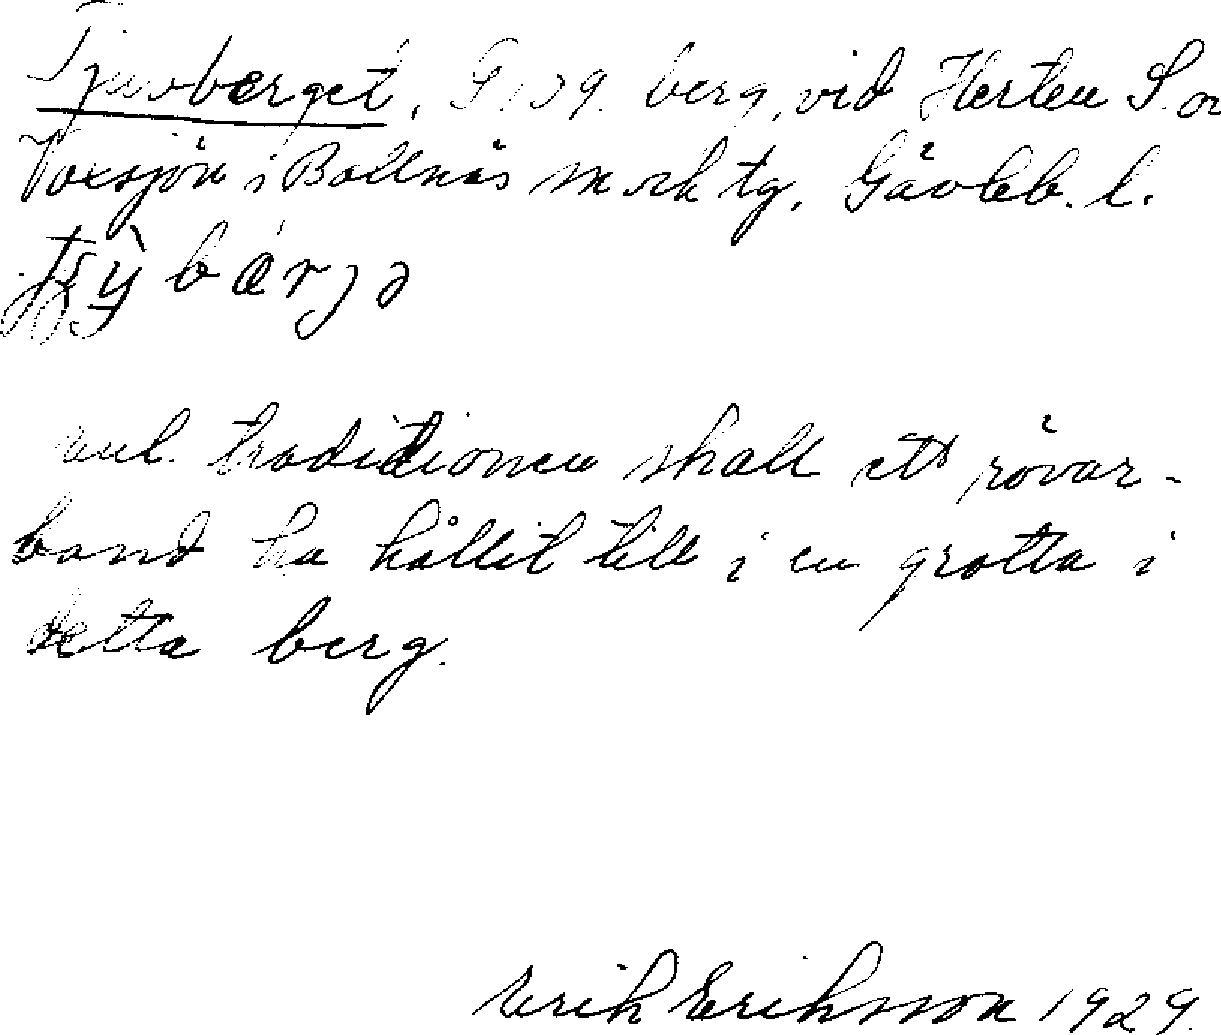 Tjuvberget, berg, vid Herten S. om
Voxsjön i Bollnäs sn och tg. Gävleb. l.
bärjə
enl. traditionen skall ett rövar-
band ha hållit till i en grotta i
detta berg.
Erik Eriksson 1929.